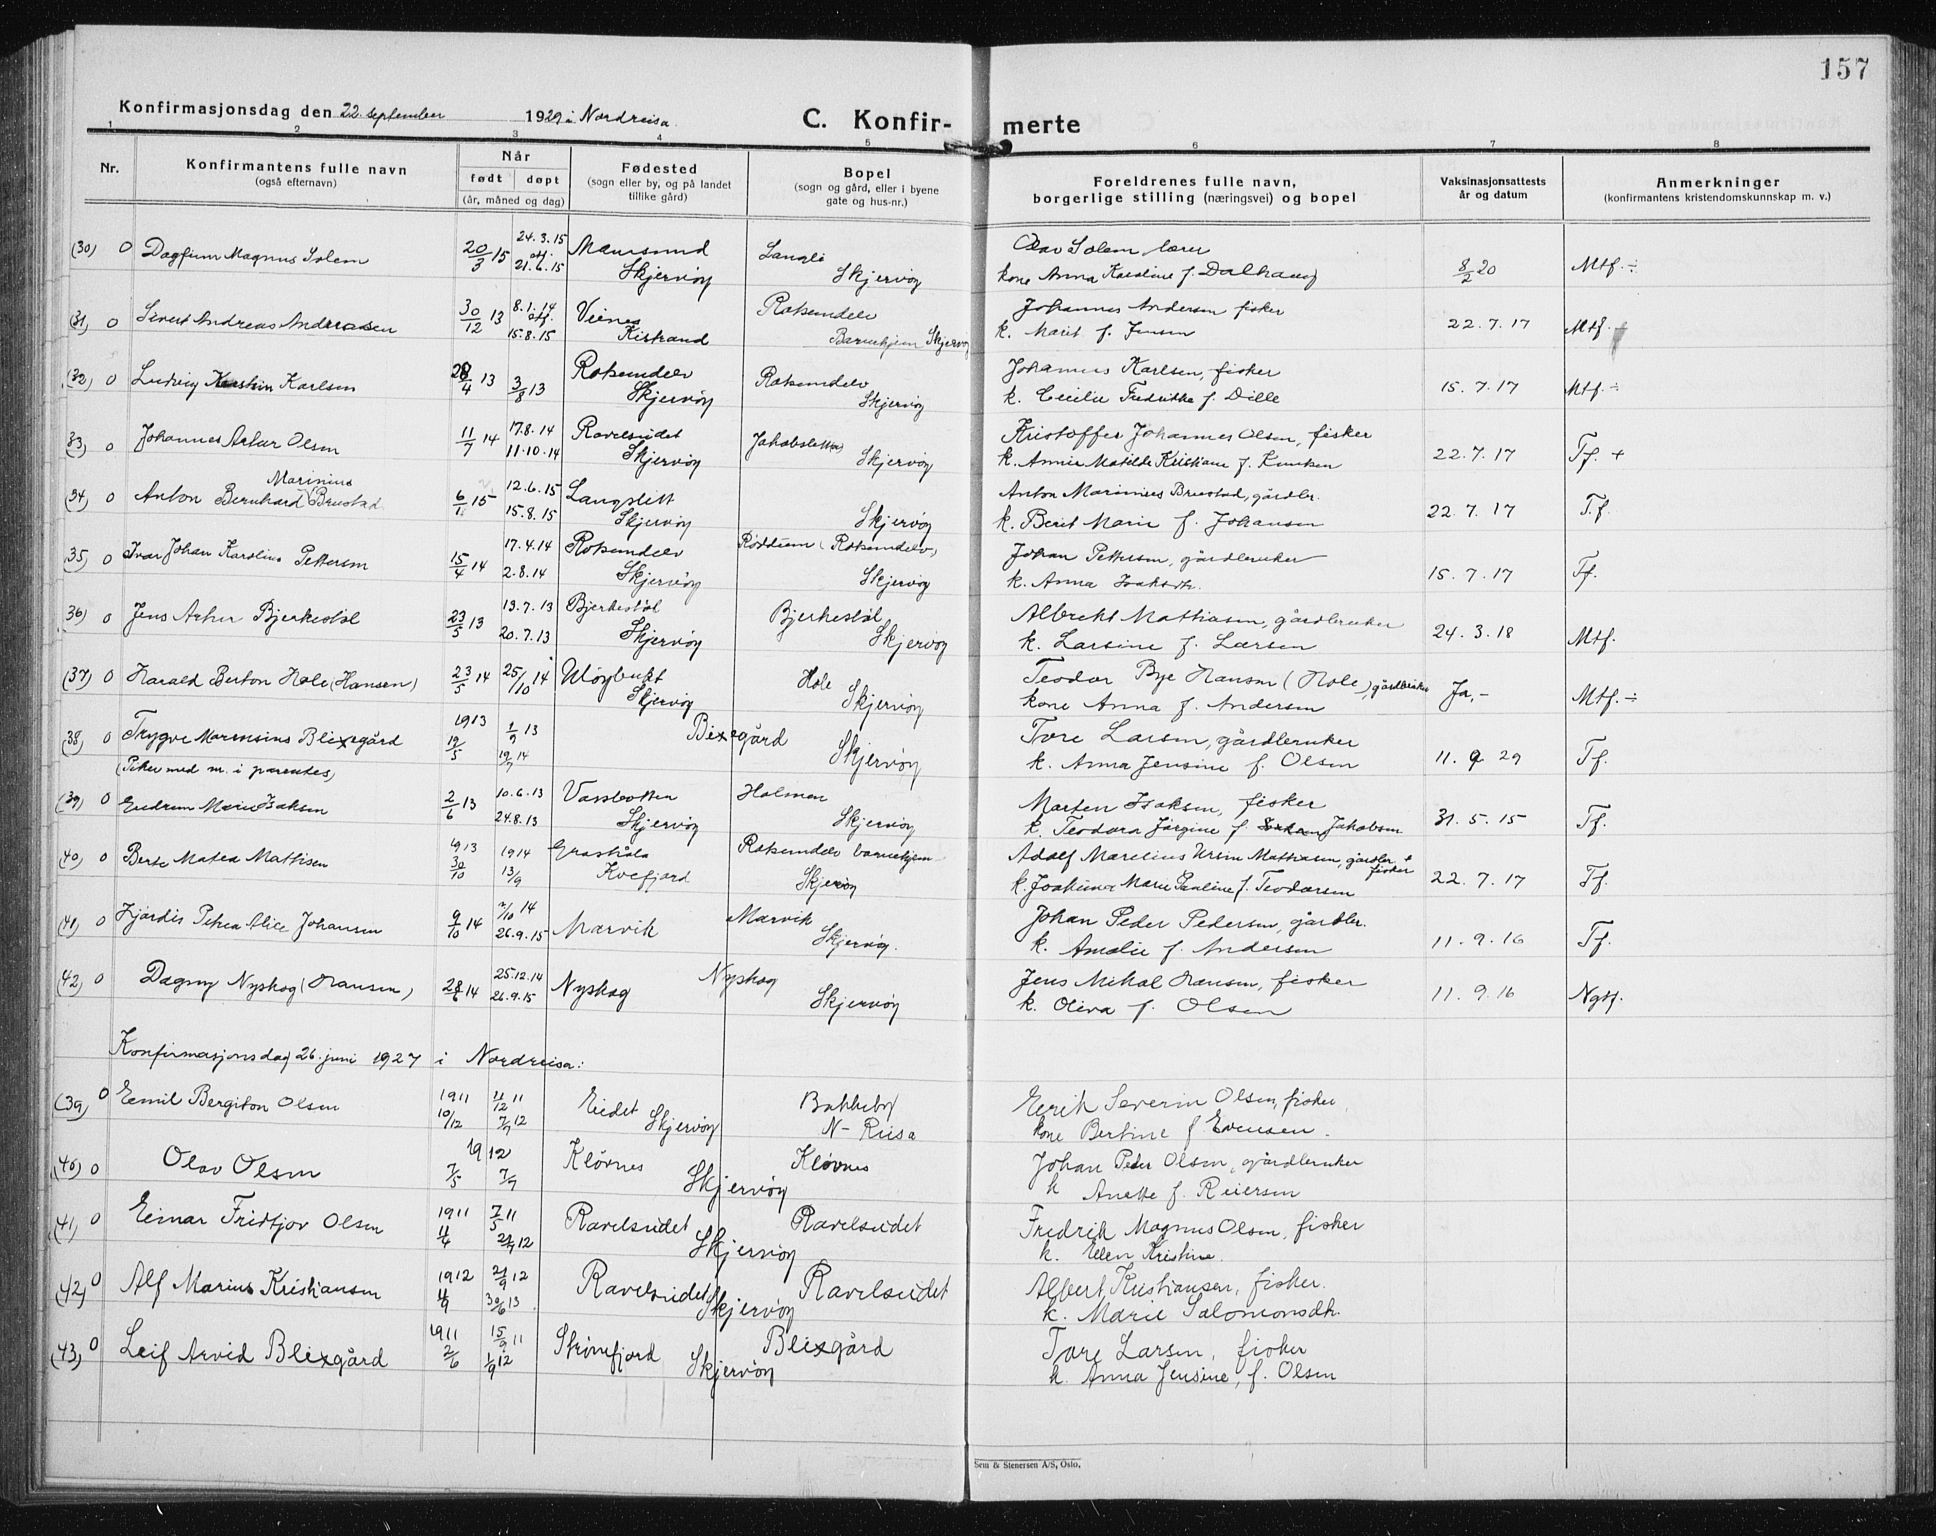 157
Konfirmasjonsdag den 22. september 1929 i Nordreisa
C. Konfir-merte
1 2 3 4 5 6 7 8
Nr.
Konfirmantens fulle navn
(også efternavn)
Når
født døpt
(år, måned og dag)
Fødested
(sogn eller by, og på landet
tillike gård)
Bopel
(sogn og gård, eller i byene
gate og hus-nr.)
Foreldrenes fulle navn,
borgerlige stilling (næringsvei) og bopel
Vaksinasjonsattests
år og datum
Anmerkninger
(konfirmantens kristendomskunnskap m. v.)
(30) 0 Dagfinn Magnus Solem 20/3 15 24.3.15 stf. 21.6.15 Maursund Skjervöy Langli Skjervöy Olav Solem lærer
kone Anna Karoline f. Dalhaug 8/2 20 Mtf. ÷
(31) 0 Sivert Andreas Andreassen 30/12 13 8.1.14 stf. 15.8.15 Veines Kistrand Rotsundelv Barnehjem Skjervöy Johannes Andersen fisker
k. Marit f. Jensen 22.7.17 Mtf.
(32) 0 Ludvig Karlsen 28/4 13 3/8 13 Rotsundelv Skjervöy Rotsundelv Skjervöy Johannes Karlsen, fisker
k. Cecilie Fredrikke f. Dille 15.7.17 Mtf ÷
33) 0 Johannes Artur Olsen 11/7 14 17.8.14 11.10.14 Ravelseidet Skjervöy Jakobsletta Skjervöy Kristoffer Johannes Olsen, fisker
k. Annie Matilde Kristiane f. Knutsen 22.7.17 Tf. +
(34) 0 Anton Bernhard Marinius Brustad 6/1 15 12.6.15 15.8.15 Langslett Skjervöy Skjervöy Anton Marinius Brustad, gårdbr.
k. Berit Marie f. Johansen 22.7.17 T.f.
35) 0 Ivar Johan Karolius Pettersen 15/4 14 17.4.14 2.8.14 Rotsundelv Skjervöy (Rotsundelv) Skjervöy Johan Pettersen, gårdbruker
k. Anna Isaksdtr. 15.7.17 Tf.
36) 0 Jens Artur Bjerkestöl 23/5 13 13.7.13 20.7.13 Bjerkestöl Skjervöy Bjerkestöl Skjervöy Albrekt Mathiasen, gårdbruker
k. Larsine f. Larsen 24.3.18 Mtf.
(37) 0 Harald Berton Hole (Hansen) 23/5 14 25/10 14 Ulöybukt Skjervöy Hole Skjervöy Teodor Bye Hansen (Hole), gårdbruker
kone Anna f. Andersen Ja,- Mtf. ÷
(38) 0 Trygve Marensius Blixgård 1913 19/5 1/9 13 19/7 14 Blixgård Skjervöy Tore Larsen, gårdbruker
k. Anna Jensine f. Olsen 11.9 29 Tf.
(Piker med nr. i parentes)
(39) 0 Gudrun Marie Isaksen 2/6 13 10.6.13 24.8.13 Vassbotten Skjervöy Holmen Skjervöy Morten Isaksen, fisker
k. Teodora Jörgine f. Jakobsen 31.5.15 Tf.
(40) 0 Berte Matea Mattisen 1913 30/10 1914 13/9 Kvefjord Rotsundelv barnehjem Skjervöy Adolf Marelius Ursin Mathiasen, gårdbr. + fisker
k. Joakime Marie Pauline f. Teodorsen 22.7.17 Tf.
(41) 0 Hjördis Petrea Alice Johansen 9/10 14 /10 14 26.9.15 Marvik Marvik Skjervöy. Johan Peder Pedersen, gårdbr.
k. Amalie f. Andersen 11.9.16 Tf.
(42) 0 Dagny Nyskog (Hansen) 28/6 14 25.12.14 26.9.15 Nyskog Nyskog Skjervöy Jens Mikal Hansen, fisker
k. Oliva f. Olsen 11.9.16 Ngtf.
Konfirmasjonsdag 26. juni 1927 i Nordreisa:
(39) 0 Emil Bergiton Olsen 1911 10/12 11/12 11 7/7 12 Eidet Skjervöy Bakkeby N-Reisa Eirik Severin Olsen, fisker,
kone Bertine f. Evensen.
(40) 0 Olav Olsen 1912 7/5 7/7 Klövnes Skjervöy Klövnes Johan Peder Olsen, gårdbruker
k Anette f. Reiersen
(41) 0 Einar Fridtjov Olsen 1911 11/4 7/5 11 21/7 12 Ravelseidet Skjervöy Ravelseidet Fredrik Magnus Olsen, fisker
k. Ellen Kristine.
(42) 0 Alf Marius Kristiansen 1912 11/9 21/9 12 30/6 13 Ravelseidet Skjervöy Ravelseidet Albert Kristiansen, fisker.
k. Marie Salomonsdtr.
(43) 0 Leif Arvid Blixgård 1911 2/6 15/9 11 1/9 12 Skjervöy Blixgård Tore Larsen, fisker
k. Anna Jensine, f. Olsen
Sem & Stenersen A/S, Oslo.